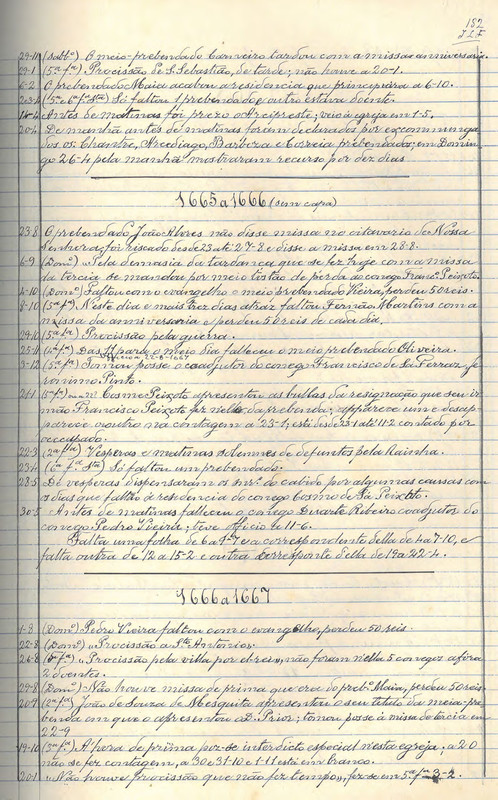 182
J.L.F.
29-11 (sabbº) O meio-prebendado Carneiro tardou com a missa anniversaria.
29-1 (5ª fª) Procissão de S. Sebastião, de tarde; não houve a 20-1.
6-2 O prebendado Maia acabou a residencia que principiára a 6-10.
20-3-4 (5ª e 6ª fª Stª) Só faltou 1 prebendado, e outro estava doente.
18-4 Antes de matinas foi prezo o Arcipreste; veio á egreja em 1-5.
20-4 De manhã antes de matinas foram declarados por excommunga
dos os: Chantre, Arcediago, Barbeza e Correia prebendados; em Domin
go 26-4 pela manhã mostraram recurso por dez dias
1665 a 1666 (sem capa)
23-8 O prebendado João Alvres não disse missa no oitavario de Nossa
Senhora; foi riscado desde 23 até 27-8 e disse a missa em 28-8.
6-9 (Domº) "Pela demasia da tardança que se fez hoje com a missa
da tercia se mandou por meio tostão de perda ao conego Francº Peixoto.
4-10 (Domº) Faltou com o evangelho o meio prebendado Vieira, perdeu 50 reis.
8-10 (5ª fª) N'este dia e mais trez dias atráz faltou Fernão Martins com a
missa da anniversaria e perdeu 50 reis de cada dia.
29-10 (5ª fª) Procissão pela guerra.
25-11 (4ª fª) Das 11 para o meio dia falleceu o meio prebendado Oliveira.
3-12 (5ª fª) Tomou posse o coadjutor do conego Francisco de Sá Ferraz, Je
ronimo Pinto.
21-1 Cosme Peixoto apresentou as bullas da resignação que seu ir
mão Francisco Peixoto fez n'elle da prebenda; apparece um e desap-
parece o outro na contagem a 23-1; está desde 23-1 até 11-2 contado por
occupado.
22-3 (2ª fª) Vesperas e matinas solemnes de defuntos pela Rainha.
23-4 (6ª fª Stª) Só faltou um prebendado.
28-5 De vesperas dispensaram os snrs. do cabido por algumas causas com
a dias que faltão á residencia do conego Cosmo de Sá Peixoto.
30-5 Antes de matinas falleceu o conego Duarte Ribeiro coadjutor do
conego Pedro Vieira; teve officio a 11-6.
Falta uma folha de 6 a 9-7 e a correspondente d'ella de 4 a 7-10, e
falta outra de 12 a 15-2 e outra correspondte d'ella de 19 a 22-4.
1666 a 1667
1-8 (Domº) Pedro Vieira faltou com o evangelho, perdeu 50 reis.
22-8 (Domº) "Procissão a Stº Antonio".
26-8 (5ª fª) "Procissão pela villa por el-rei", não foram n'ella 5 conegos afóra
2 doentes.
29-8 (Domº) Não houve missa de prima que era do prebº Maia, perdeu 50 reis.
20-9 (2ª fª) João de Souza de Mesquita apresentou o seu titulo da meia-pre-
benda em que o apresentou o D. Prior; tomou posse á missa de tercia em
22-9
19-10 (3ª fª) Á hora de prima poz-se interdicto especial n'esta egreja; a 20
não se fez contagem, a 30 e 31-10 e 1-11 está em branco.
20-1 "Não houve Procissão que não fez tempo", fez-se em 5ª fª 3-2.